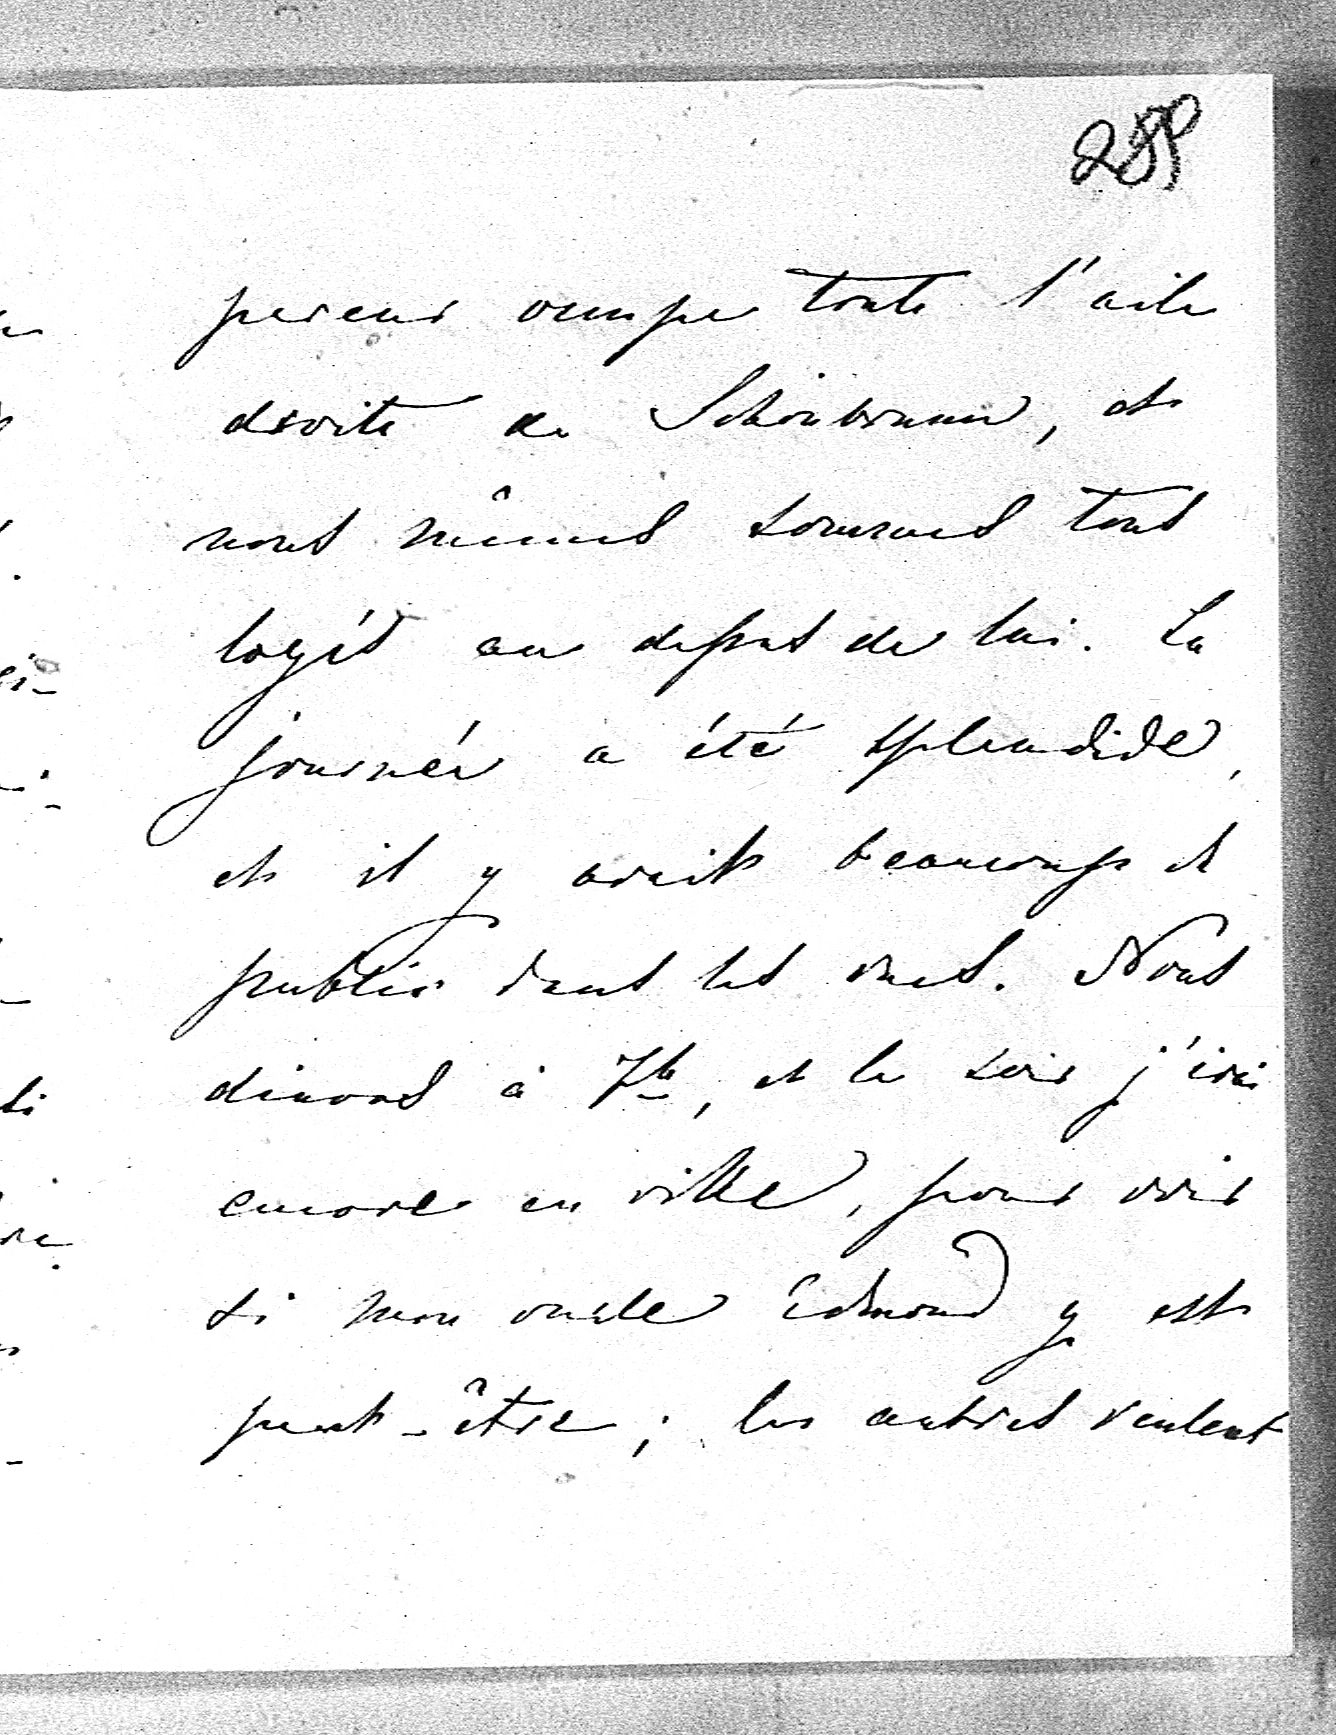 pereur occupe toute l'aile
droite de Schönbrunn, et
nous mêmes sommes tous
logés au dessus de lui. La
journée a été splendide,
et il y avait beaucoup de
public dans les rues. Nous
dinons à 7h, et le soir j'irai
encore en ville, pour voir
si mon oncle Edmond y est
peut-être; les autres veulent